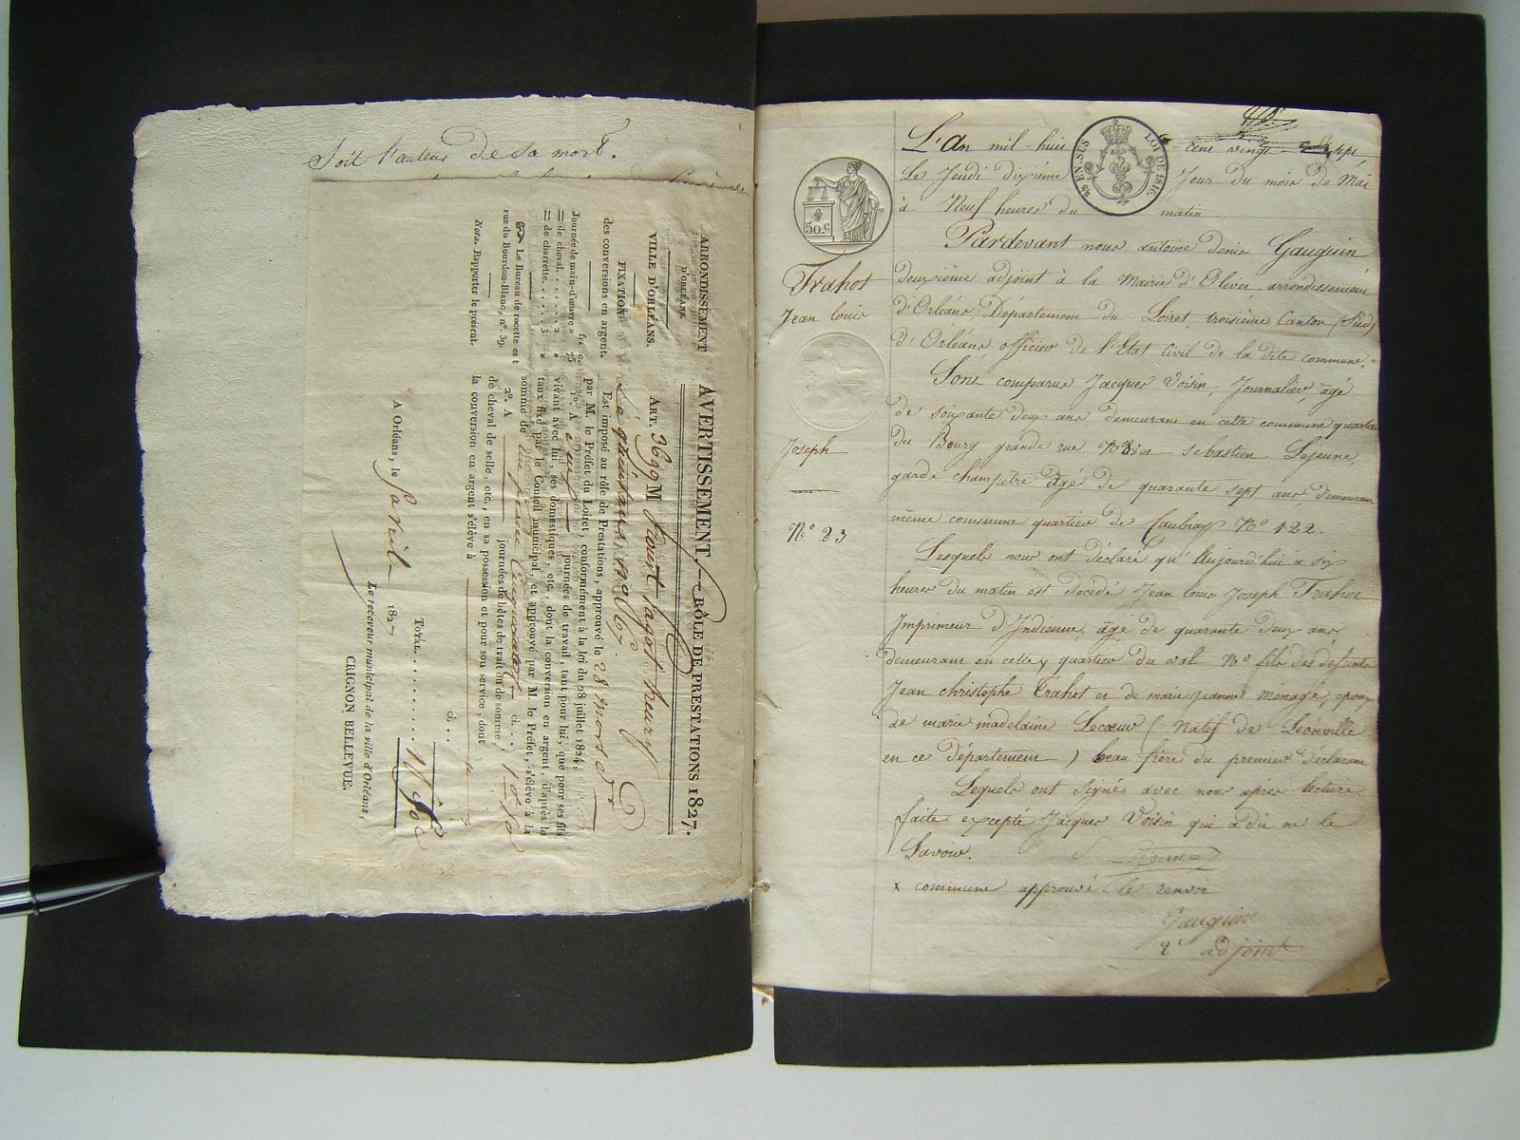 Soit l'auteur de sa mort.
ARRONDISSEMENT
D'ORLÉANS.
VILLE D'ORLÉANS.
FIXATION
des conversions en argent.
Journée de main-d'œuvre
de cheval
de charrette
Le Bureau de recette est
rue du Bourdon-Blanc, n°. 39.
Nota. Rapporter le présent.
AVERTISSEMENT. RÔLE DE PRESTATIONS 1827.
ART. 3699 M
Est imposé au rôle de Prestations, approuvé le 28 mars dr
par M. le Préfet du Loiret, conformément à la loi du 28 juillet 1824;
1°. A journées de travail, tant pour lui, que pour ses fils
vivant avec lui, ses domestiques, etc., dont la conversion en argent, d'après le
taux fixé par le Conseil municipal, et approuvé par M. le Préfet, s'élève à la
somme de ci...
2°. A journées de bêtes de trait, de somme,
de cheval de selle, etc., en sa possession et pour son service, dont
la conversion en argent s'élève à ci...
TOTAL
A Orléans, le 1827
Le receveur municipal de la ville d'Orléans,
CRIGNON BELLEVUE.
LOI DE 1816
50.c
L'An mil-huit cent vingt-sept
Le Jeudi dixième Jour du mois de Mai
à Neuf heures du matin
Pardevant nous antoine denis Gauguin
Trahot
Jean louis
Joseph
N° 23
deuxième adjoint à la Mairie d'Olivet arrondissement
d'Orléans, Département du Loiret, troisième Canton (Sud)
d'Orléans officier de l'Etat Civil de la dite commune.
Sont comparus Jacques Voisin, Journalier, âgé
de soixante deux ans demeurant en cette commune quartier
du Bourg grande rue et sebastien Lejeune,
garde champêtre âgé de quarante sept ans demeurant
même commune quartier de Caubray N° 122.
Lesquels nous ont déclaré qu'Aujourd'hui à six
heures du matin est décédé Jean louis Joseph Trahot
Imprimeur d'Indienne, âgé de quarante deux ans,
demeurant en cette x quartier du val N° fils des défunts
Jean christophe Trahot et de marie jeanne ménager, époux
de marie madelaine Lecœur (Natif de Léonville
en ce département) beau frère du premier déclarant
Lesquels ont signés avec nous après lecture
faite excepté Jacques Voisin qui a dit ne le
Savoir.
x commune approuvé le renvoi
Gauguin
2e adjoint